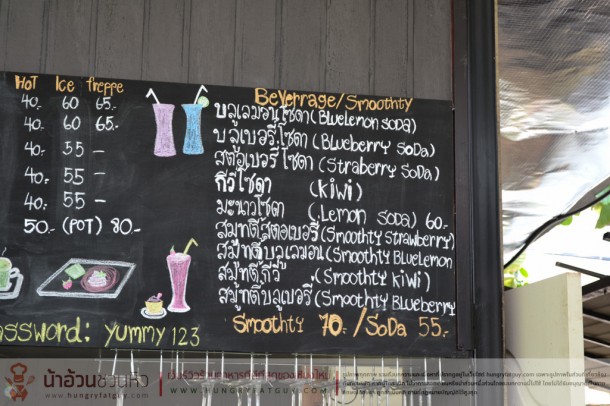 HOT Ice freppe
40.- 60 65.-
40.- 60 65.-
40.- 55 —
40.- 55 —
40.- 55 —
50.- (POT) 80.-
Beverrage/Smoothty
บลูเลมอนโซดา (Bluelemon soda)
บลูเบอรี่โซดา (Blueberry SoDa)
สตอเบอรี่โซดา (Straberry SoDa)
กีวีโซดา (kiwi)
มะนาวโซดา (Lemon SODA) 60.-
สมูทตี้สตอเบอรี่ (Smoothty Strawberry)
สมูทตี้บลูเลมอน (Smoothty BlueLemon
สมูทตี้กีวี (Smoothty kiwi)
สมูทตี้บลูเบอรี่ (Smoothty Blueberry
Smoothty 70.- / SoDa 55.-
assword: yummy 123
น้าอ้วนชวนหิว
www.hungryfatguy.com
WWW.HUNGRYFATGUY.COM